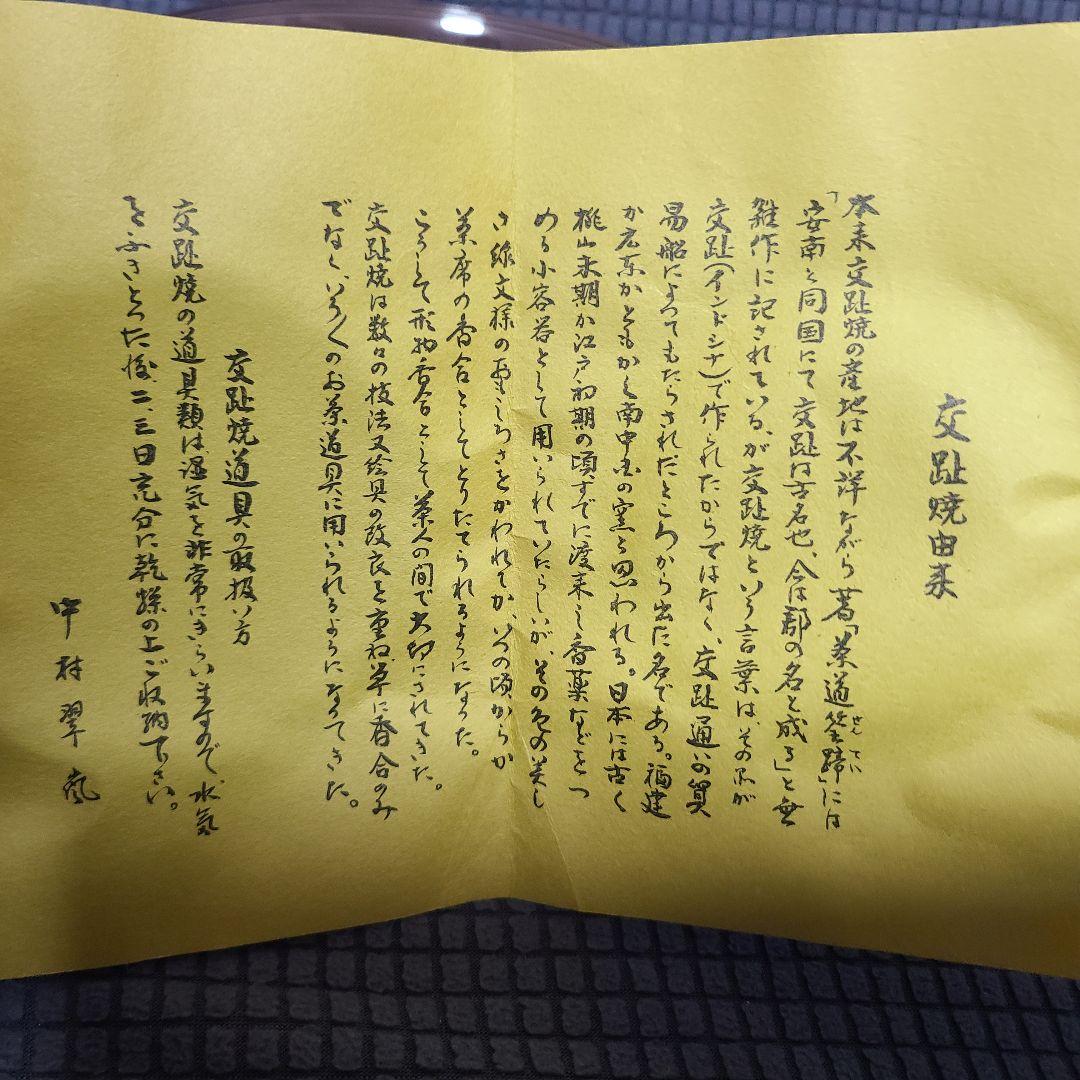 交趾焼由来
本来交趾焼の産地は不詳ながら著「茶道筌蹄」には
せん てい
「安南と同国にて交趾は古名也、今は郡の名と成る」と無
雑作に記されている、が交趾焼という言葉は、その品が
交趾(インドシナ)で作られたからではなく、交趾通いの貿
易船によってもたらされたところから出た名である。福建
か広東かともかく南中国の窯と思われる。日本には古く
桃山末期か江戸初期の頃、すでに渡来し香薬などをつ
める小容器として用いられていたらしいが、その色の美し
さ線文様のおもしろさをかわれてか、いつの頃からか
茶席の香合としてとりたてられるようになった。
こうして形物香合として茶人の間で大切にされてきた。
交趾焼は数々の技法又絵具の改良を重ね、単に香合のみ
でなく、いろ〱のお茶道具に用いられるようになってきた。
交趾焼道具の取扱い方
交趾焼の道具類は、湿気を非常にきらいますので、水気
をふきとった後、二、三日充分に乾燥の上ご収納下さい。
中村翠嵐